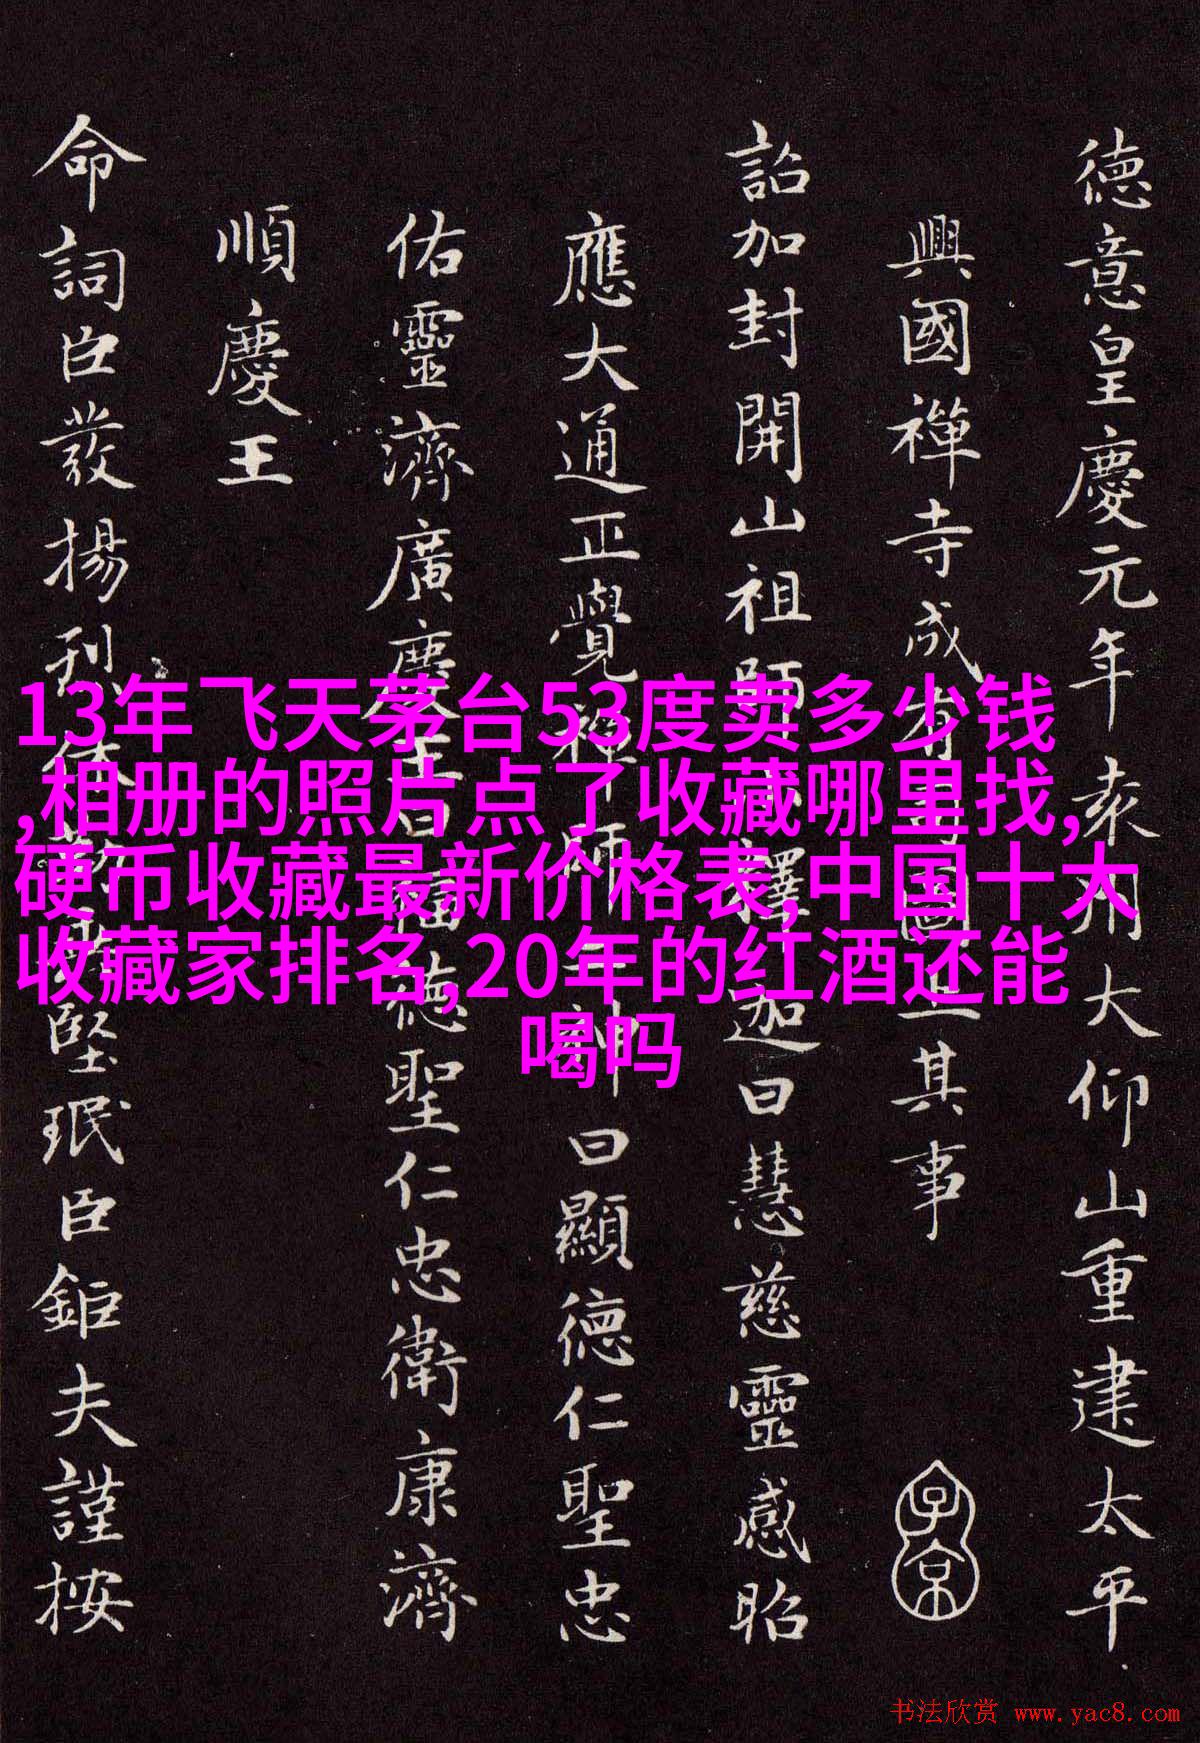 德意皇慶元年袁州大仰山重建太平
興國禪寺成有司圖上其事
詔加封開山祖師小釋迦曰慧慈靈感昭
應大通正覺禪師二神曰顯德仁聖忠
佑靈濟廣慶王曰福德聖仁忠衛康濟
順慶王
命詞臣發揚休堅珉臣鉅夫謹按
13年飞天茅台53度卖多少钱
,相册的照片点了收藏哪里找,
硬币收藏最新价格表,中国十大
收藏家排名,20年的红酒还能
喝吗
书法欣赏 www.yac8.com